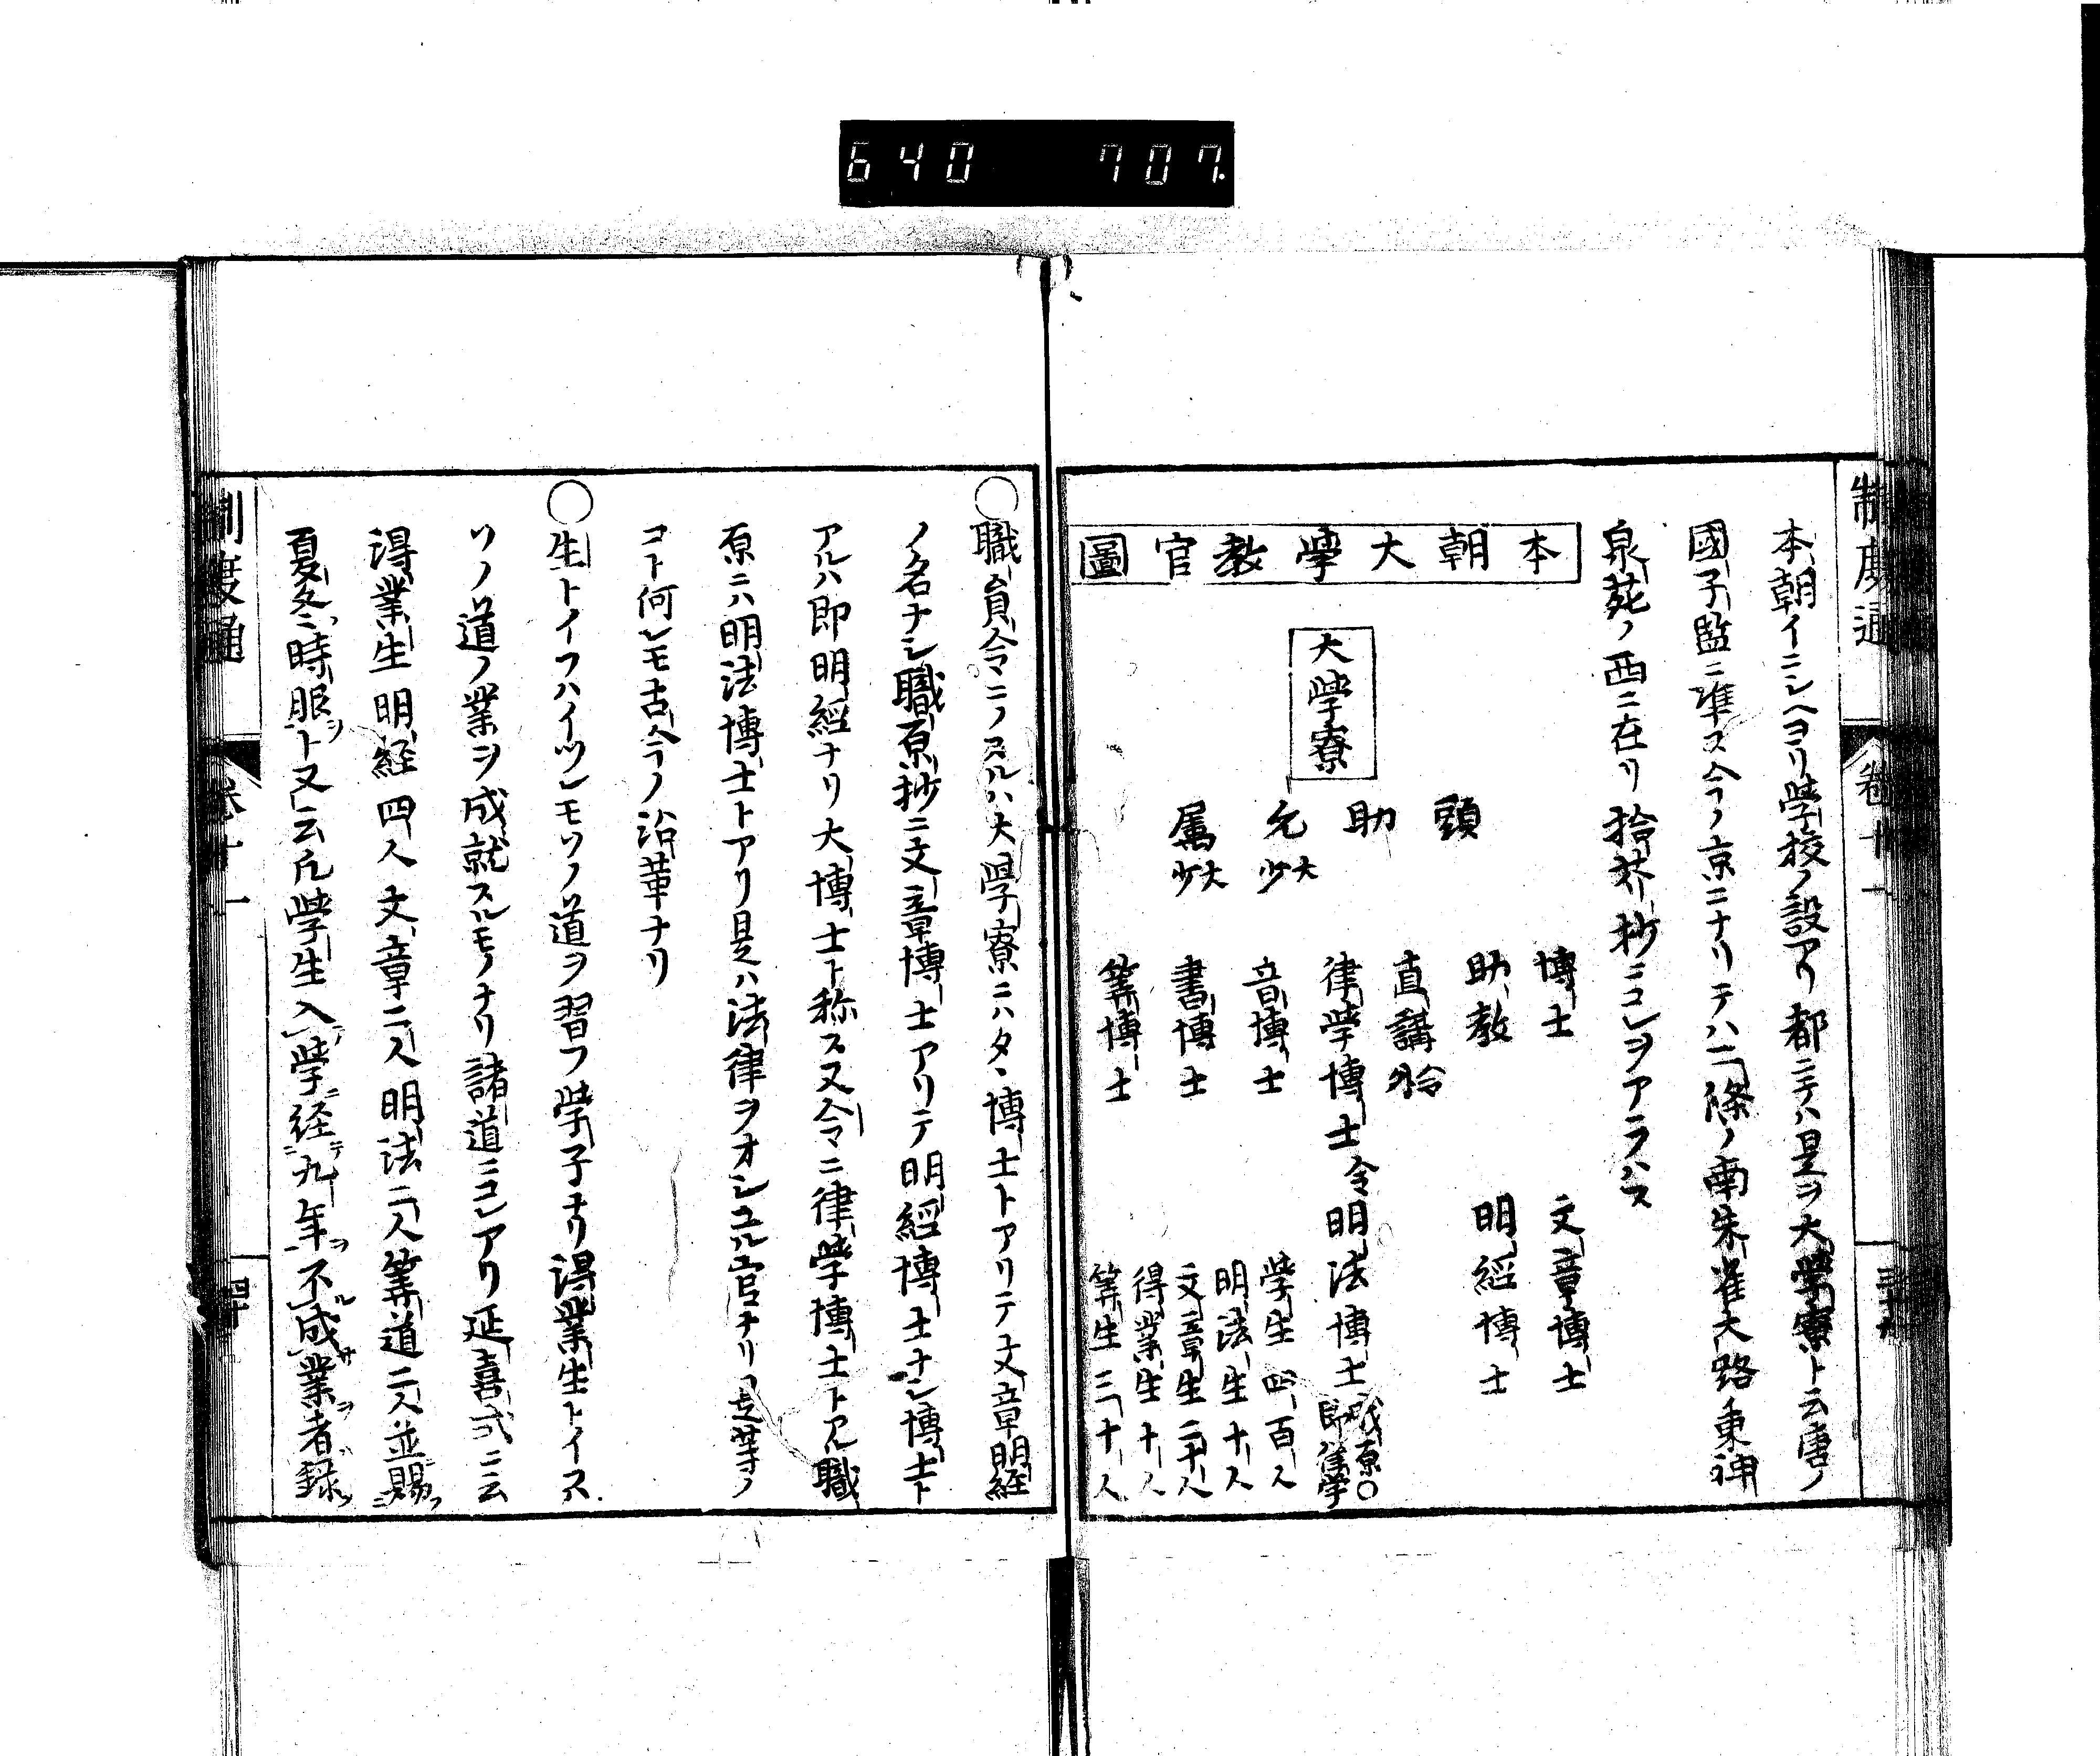 640 707.
制度通 卷十一 三十九
本朝イニシヘヨリ學校ノ設アリ都ニテハ是ヲ大學寮ト云唐ノ
國子監ニ準ス今ノ京ニナリテハ二條ノ南朱雀大路東神
泉苑ノ西ニ在リ拾芥抄ニコレヲアラハス
本朝大學教官圖
大學寮
頭
助
允 大少
属 大少
博士
助教
直講 令外
律學博士 令
音博士
書博士
筭博士
文章博士
明經博士
明法博士 職原〇即律学
學生四百人
明法生十人
文章生二十人
得業生十人
筭生三十人
〇職員令ニノスルハ大學寮ニハタヽ博士トアリテ文章明経
ノ名ナシ職原抄ニ文章博士アリテ明經博士ナシ博士ト
アルハ即明經ナリ大博士ト称ス又令ニ律學博士トアル職
原ニハ明法博士トアリ是ハ法律ヲオシユル官ナリ是等ノ
コト何レモ古今ノ沿革ナリ
〇生トイフハイツレモソノ道ヲ習フ學子ナリ得業生トイフハ
ソノ道ノ業ヲ成就スルモノナリ諸道ニコレアリ延喜式ニ云
得業生明経四人文章二人明法二人筭道二人並賜
夏冬時服ト又云凡學生入學経九年不成業者録
制度通 卷十一 四十